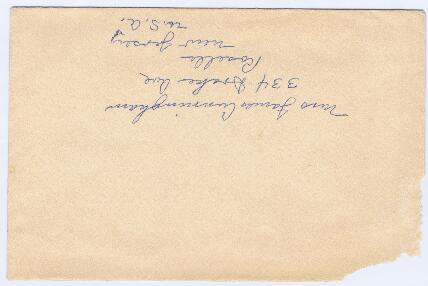 Mrs James Cunningham
334 Drake Ave
Roselle
New Jersey
U.S.A.